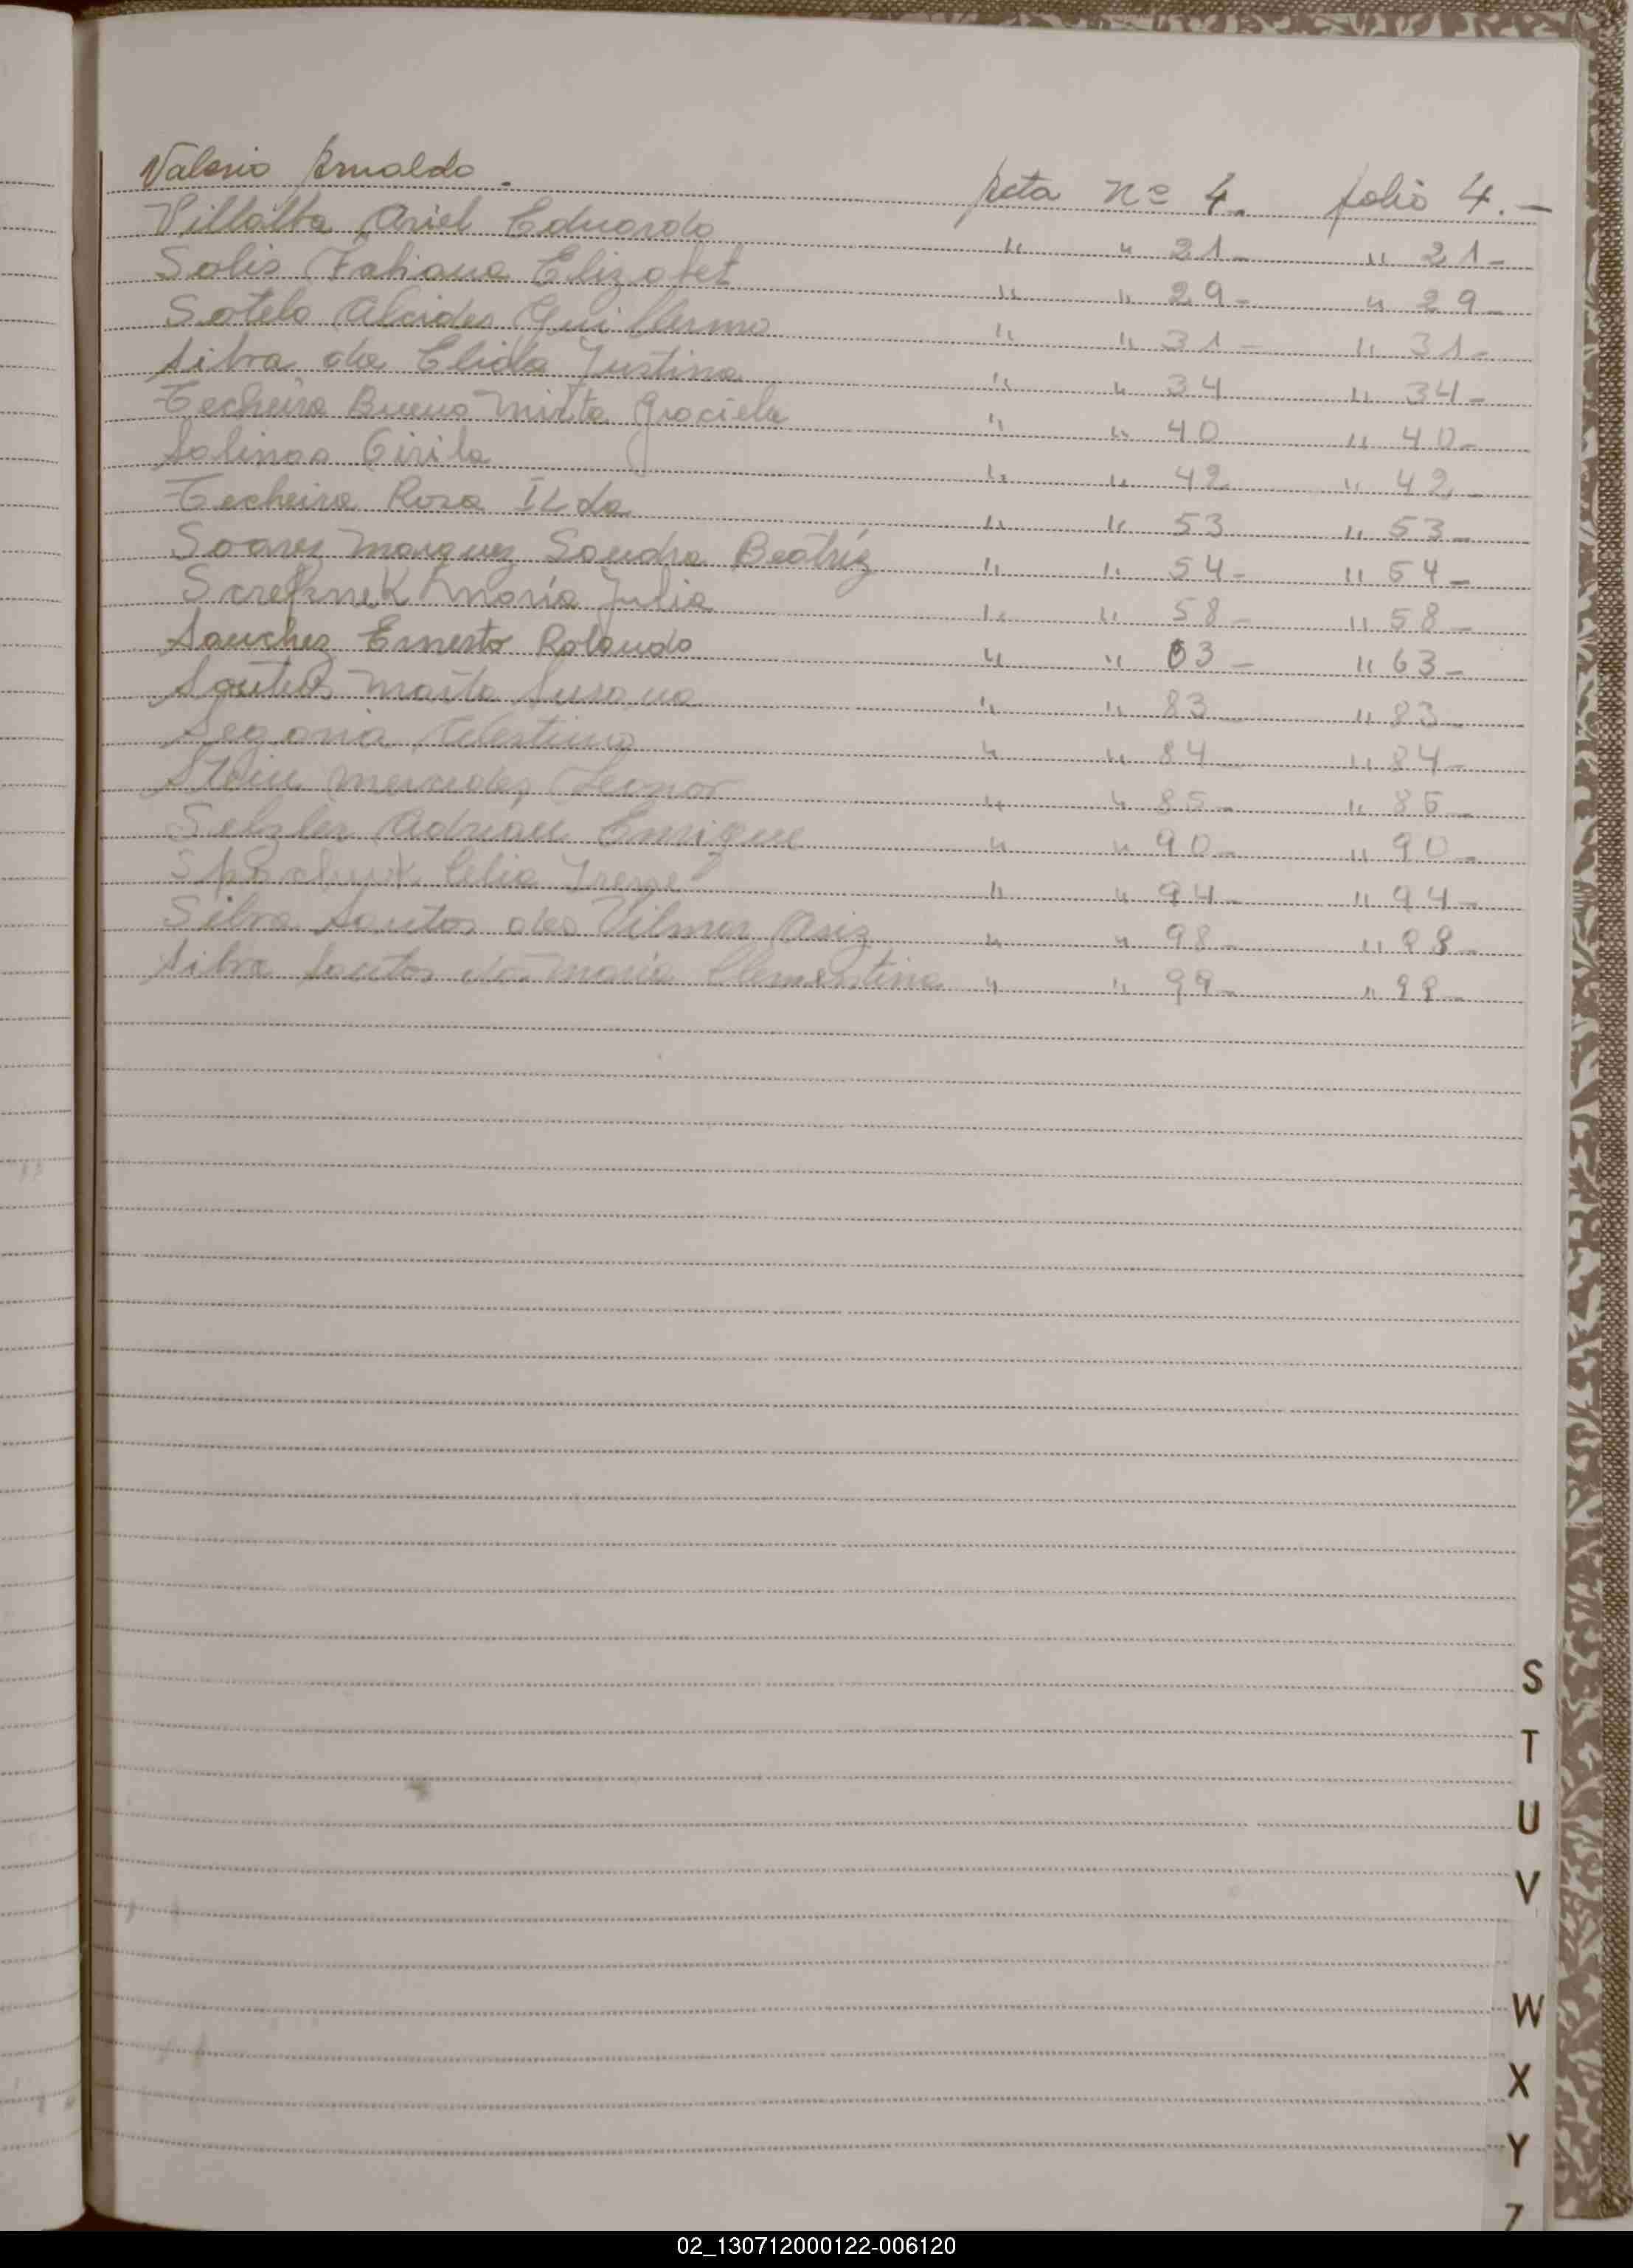 Valerio Arnaldo. Acta nº 4. folio 4.-
Villalba Ariel Eduardo " " 21- " 21-
Solis Fabiana Elizabet " " 29- " 29-
Sotelo Alcides Guillermo " " 31- " 31-
Silva da Elida Justina " " 34 " 34-
Techeira Bueno Mirta Graciela " " 40 " 40-
Salinas Cirila " " 42 " 42-
Techeira Rosa ILda " " 53 " 53-
Soarez Marquez Sandra Beatríz " " 54- " 54-
María Julia " " 58- " 58-
Sanchez Ernesto Rolando " " 63- " 63-
Santos Susana " " 83- " 83-
Segovia Celestino " " 84- " 84-
Mercedes Leonor " " 85- " 85-
Adrian Enrique " " 90- " 90-
Celia Irene " " 94- " 94-
Silva Santos dos Vilmar " " 98- " 98-
Silva Santos dos María Clementina " " 99- " 99-
S
T
U
V
W
X
Y
Z
02_130712000122-006120